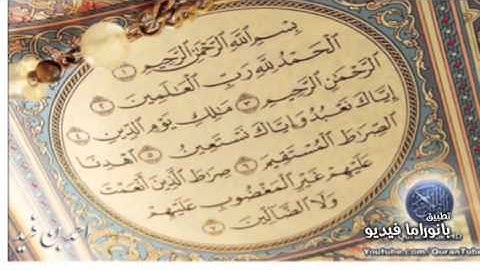 بِسْمِ اللَّهِ الرَّحْمَٰنِ الرَّحِيمِ ١
الْحَمْدُ لِلَّهِ رَبِّ الْعَٰلَمِينَ ٢
الرَّحْمَٰنِ الرَّحِيمِ ٣ مَٰلِكِ يَوْمِ الدِّينِ ٤
إِيَّاكَ نَعْبُدُ وَإِيَّاكَ نَسْتَعِينُ ٥ اهْدِنَا
الصِّرَاطَ الْمُسْتَقِيمَ ٦ صِرَاطَ الَّذِينَ أَنْعَمْتَ
عَلَيْهِمْ غَيْرِ الْمَغْضُوبِ عَلَيْهِمْ
وَلَا الضَّالِّينَ ٧
تطبيق
بانوراما فيديو
Youtube.com/QuranTube